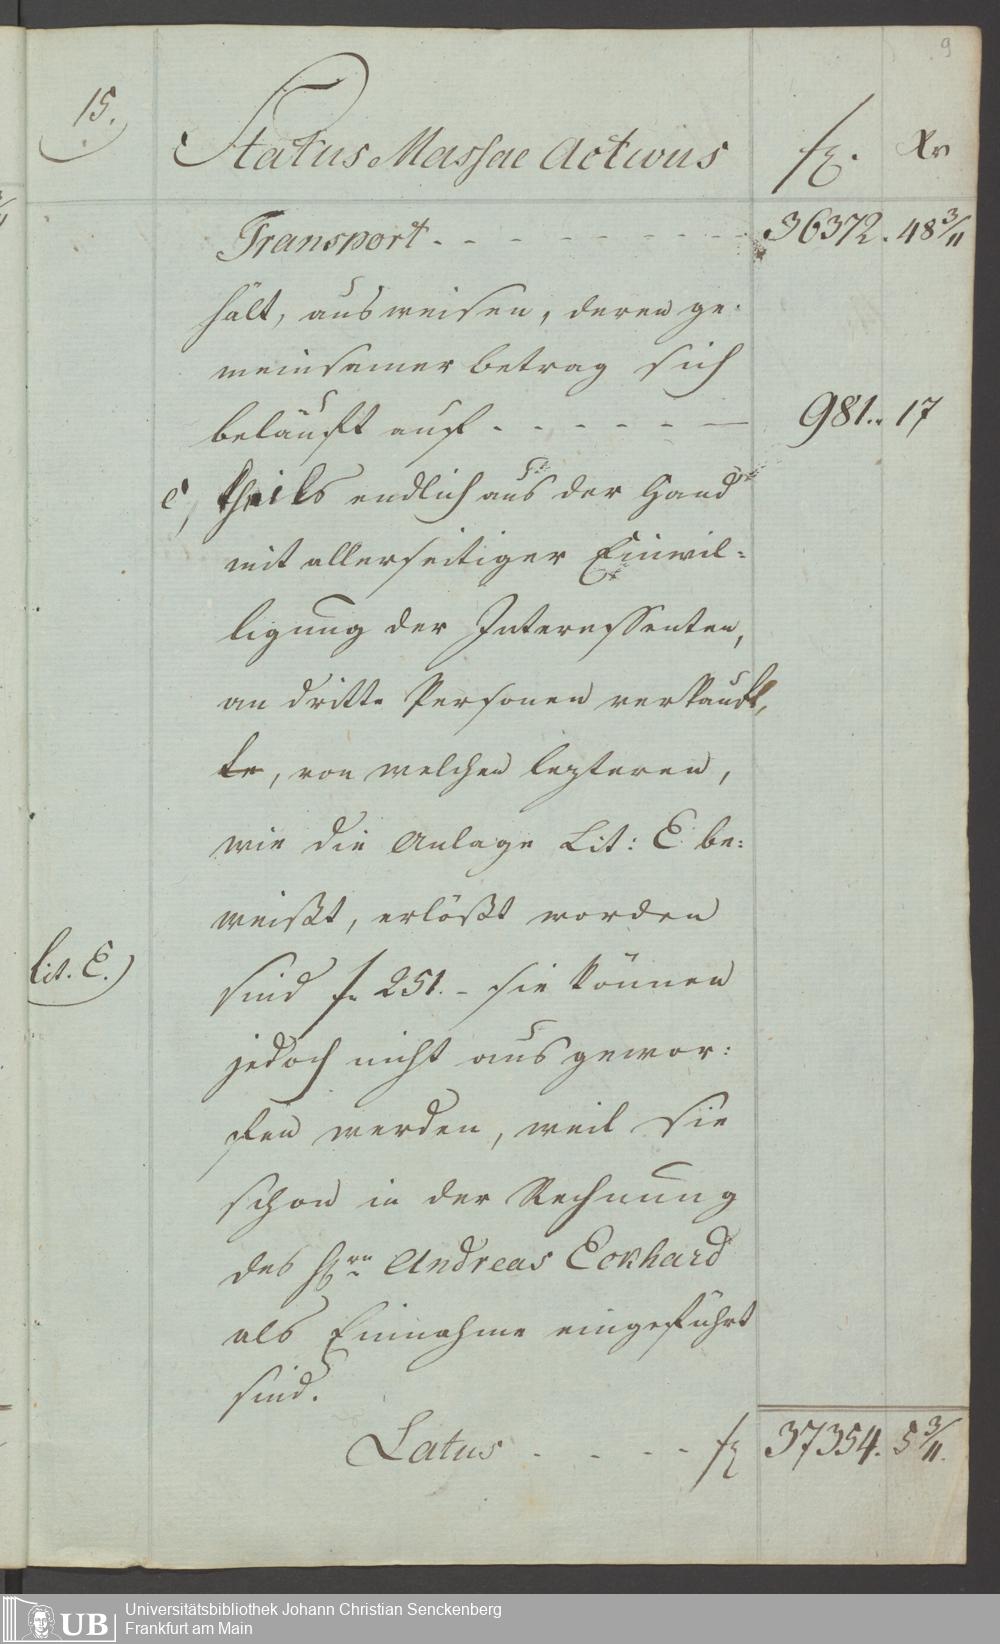 9
15.
Status Massae Activus fl. Xr
Transport - - - - - - - - 36372. 48 3/11
hält, ausweisen, deren ge-
meinsamer betrag sich
beläuft auf - - - - - - 981.. 17
c, theils endlich aus der Hand
mit allerseitiger Einwil=
ligung der Interessenten,
an dritte Personen verkauft,
te, von welchen lezteren,
wie die Anlage Lit: E be:
weißt, erlößt worden
Lit. E.)
sind f. 251. - sie können
jedoch nicht ausgewor:
fen werden, weil sie
schon in der Rechnung
des Hrn Andreas Eckhard
als Einnahme eingeführt
sind.
Latus - - - - fl 37354. 5 3/11.
UB Universitätsbibliothek Johann Christian Senckenberg
Frankfurt am Main